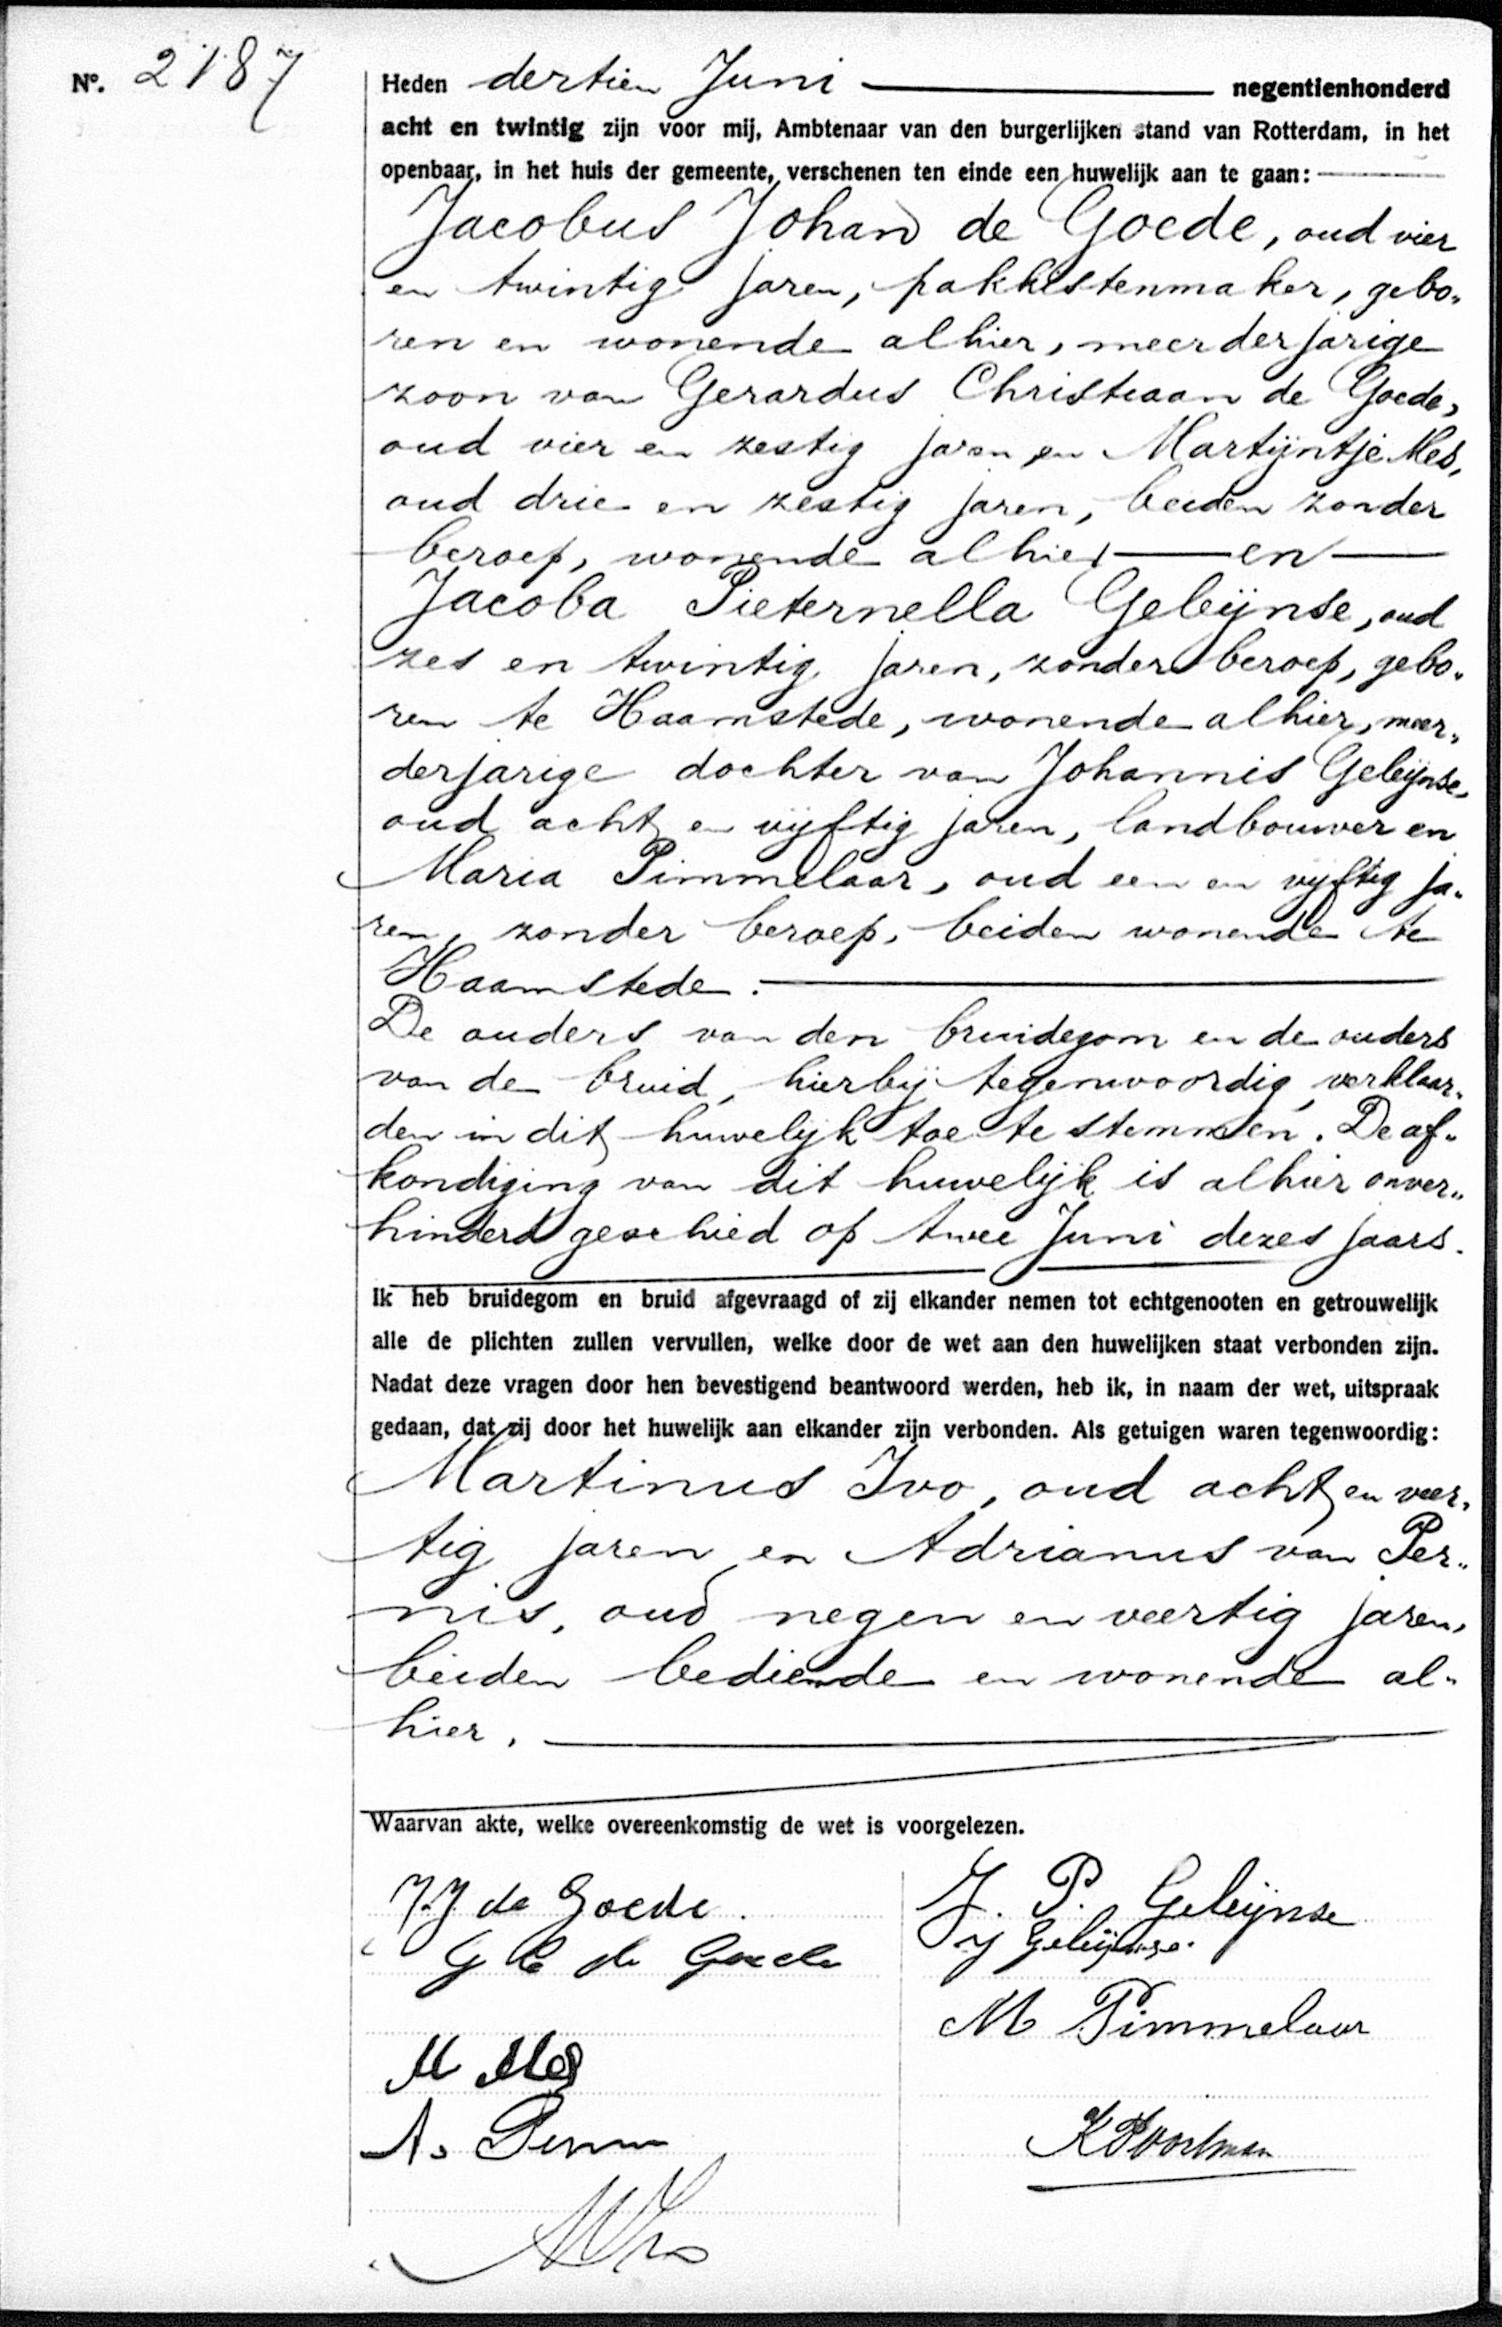 No. 2187
Heden dertien Juni negentienhonderd
acht en twintig zijn voor mij, Ambtenaar van den burgerlijken stand van Rotterdam, in het
openbaar, in het huis der gemeente, verschenen ten einde een huwelijk aan te gaan:
Jacobus Johan de Goede, oud vier
en twintig jaren, pakkistenmaker, gebo„
ren en wonende alhier, meerderjarige
zoon van Gerardus Christiaan de Goede,
oud vier en zestig jaren en Martijntje Mes,
oud drie en zestig jaren, beiden zonder
beroep, wonende alhier — en —
Jacoba Pieternella Geleijnse, oud
zes en twintig jaren, zonder beroep, gebo„
ren te Haamstede, wonende alhier, meer„
derjarige dochter van Johannis Geleijnse,
oud acht en vijftig jaren, landbouwer en
Maria Pimmelaar, oud een en vijftig ja„
ren, zonder beroep, beiden wonende te
Haamstede.
De ouders van den bruidegom en de ouders
van de bruid, hierbij tegenwoordig, verklaar„
den in dit huwelijk toe te stemmen. De af„
kondiging van dit huwelijk is alhier onver„
hinderd geschied op twee Juni dezes jaars.
Ik heb bruidegom en bruid afgevraagd of zij elkander nemen tot echtgenooten en getrouwelijk
alle de plichten zullen vervullen, welke door de wet aan den huwelijken staat verbonden zijn.
Nadat deze vragen door hen bevestigend beantwoord werden, heb ik, in naam der wet, uitspraak
gedaan, dat zij door het huwelijk aan elkander zijn verbonden. Als getuigen waren tegenwoordig:
Martinus Ivo, oud acht en veer„
tig jaren en Adrianus van Per„
nis, oud negen en veertig jaren,
beiden bediende en wonende al„
hier.
Waarvan akte, welke overeenkomstig de wet is voorgelezen.
J. J de Goede.
J. P. Geleijnse
J Geleijnse.
G C de Goede
M Pimmelaar
M Mes